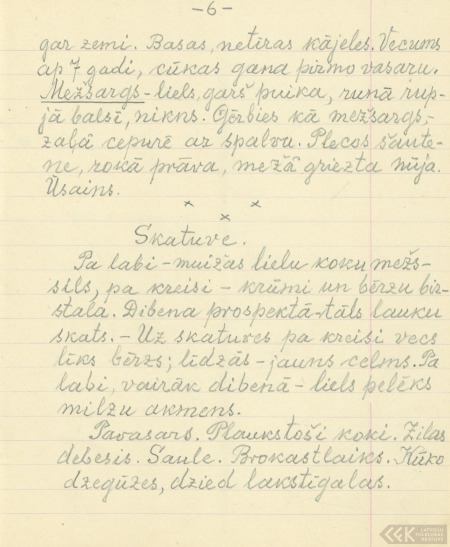 -6-
gar zemi. Basas, netīras kājeles. Vecums
ap 7 gadi, cūkas gana pirmo vasaru.
Mežsargs - liels, garš puika, runā rup-
jā balsī, nikns. Ģērbies kā mežsargs,-
zaļā cepurē ar spalvu. Plecos šaute-
ne, rokā prāva, mežā griezta nūja.
Ūsains.
x x
x
Skatuve.
Pa labi - muižas lielu koku mežs-
sils, pa kreisi - krūmi un bērzu bir-
stala. Dibena prospektā - tāls lauku
skats. - Uz skatuves pa kreisi vecs
līks bērzs; līdzās - jauns celms. Pa
labi, vairāk dibenā - liels pelēks
milzu akmens.
Pavasars. Plaukstoši koki. Zilas
debesis. Saule. Brokastlaiks. Kūko
dzegūzes, dzied lakstīgalas.
LATVIEŠU
FOLKLORAS
KRĀTUVE